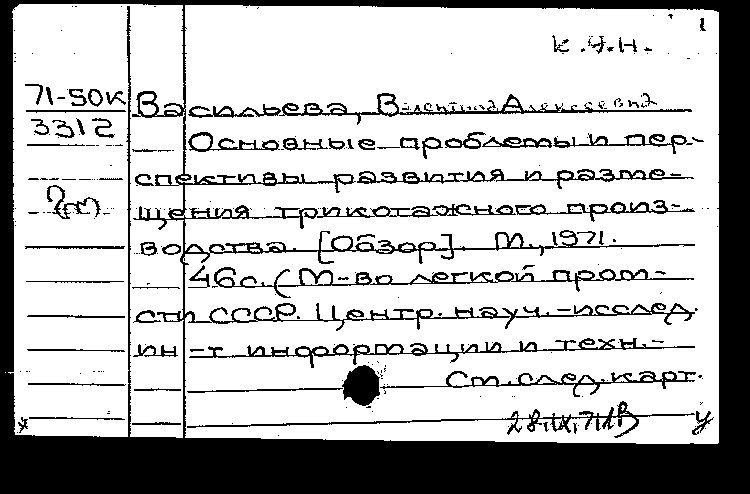 1
к.ч.н.
71-50к
3312
Васильева, Валентина Алексеевна
Основные проблемы и пер-
спективы развития и разме-
щения трикотажного произ-
водства. [Обзор]. М., 1971.
46с. (М-во легкой пром-
сти СССР. Центр. науч.-исслед.
ин-т информации и техн.-
См. след. карт.
28.IX.71В у